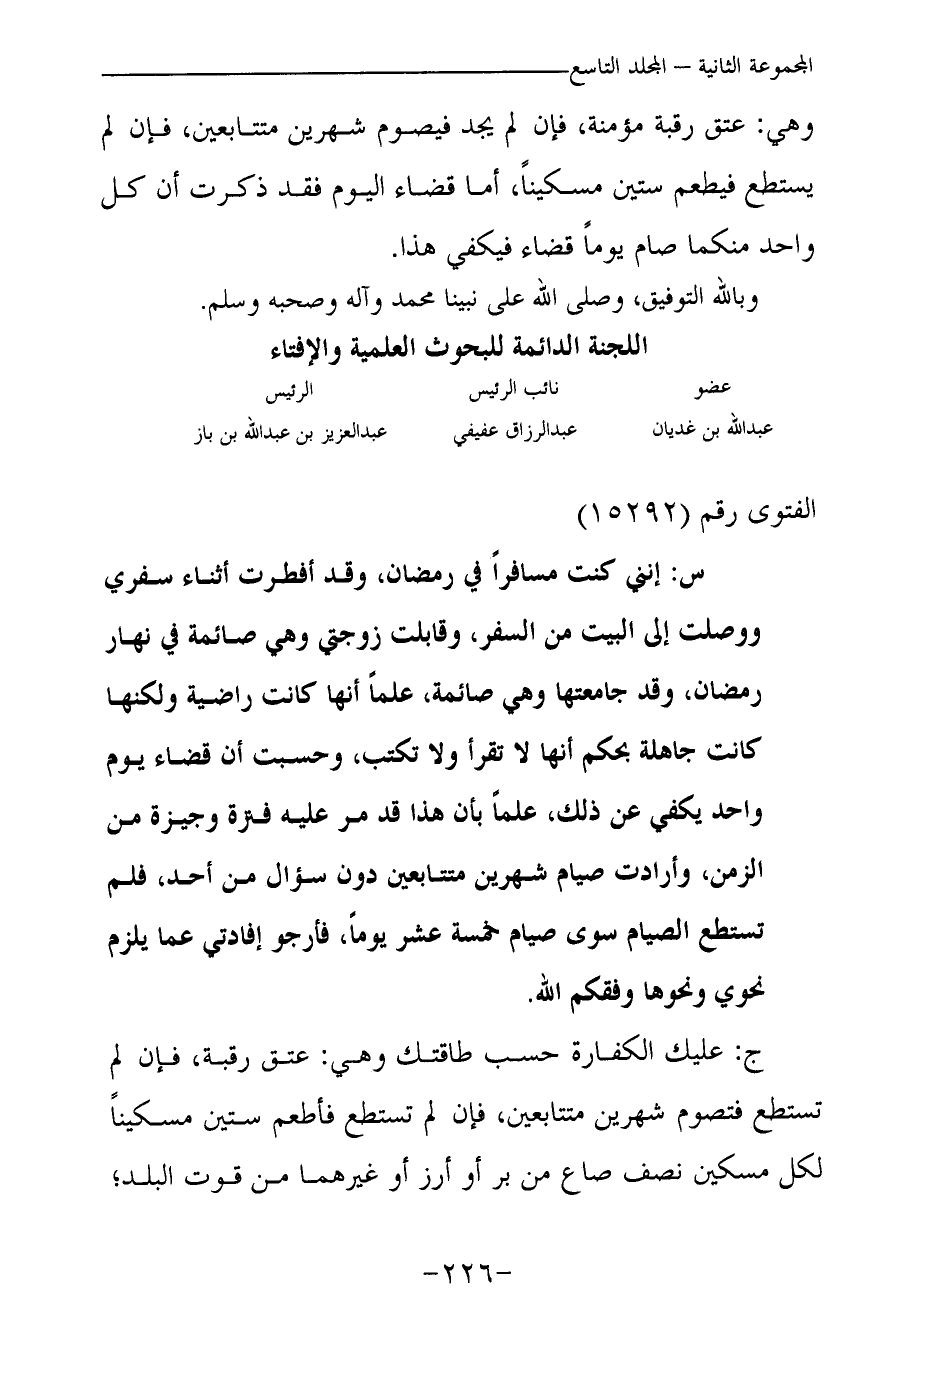 المجموعة الثانية – المجلد التاسع
وهي: عتق رقبة مؤمنة، فإن لم يجد فيصوم شهرين متتابعين، فإن لم
يستطع فيطعم ستين مسكيناً، أما قضاء اليوم فقد ذكرت أن كل
واحد منكما صام يوماً قضاء فيكفي هذا.
وبالله التوفيق، وصلى الله على نبينا محمد وآله وصحبه وسلم.
اللجنة الدائمة للبحوث العلمية والإفتاء
عضو نائب الرئيس الرئيس
عبدالله بن غديان عبدالرزاق عفيفي عبدالعزيز بن عبدالله بن باز
الفتوى رقم (١٥٢٩٢)
س: إنني كنت مسافراً في رمضان، وقد أفطرت أثناء سفري
ووصلت إلى البيت من السفر، وقابلت زوجتي وهي صائمة في نهار
رمضان، وقد جامعتها وهي صائمة، علماً أنها كانت راضية ولكنها
كانت جاهلة بحكم أنها لا تقرأ ولا تكتب، وحسبت أن قضاء يوم
واحد يكفي عن ذلك، علماً بأن هذا قد مر عليه فترة وجيزة من
الزمن، وأرادت صيام شهرين متتابعين دون سؤال من أحد، فلم
تستطع الصيام سوى صيام خمسة عشر يوماً، فأرجو إفادتي عما يلزم
نحوي ونحوها وفقكم الله.
ج: عليك الكفارة حسب طاقتك وهي: عتق رقبة، فإن لم
تستطع فتصوم شهرين متتابعين، فإن لم تستطع فأطعم ستين مسكيناً
لكل مسكين نصف صاع من بر أو أرز أو غيرهما من قوت البلد؛
-٢٢٦-